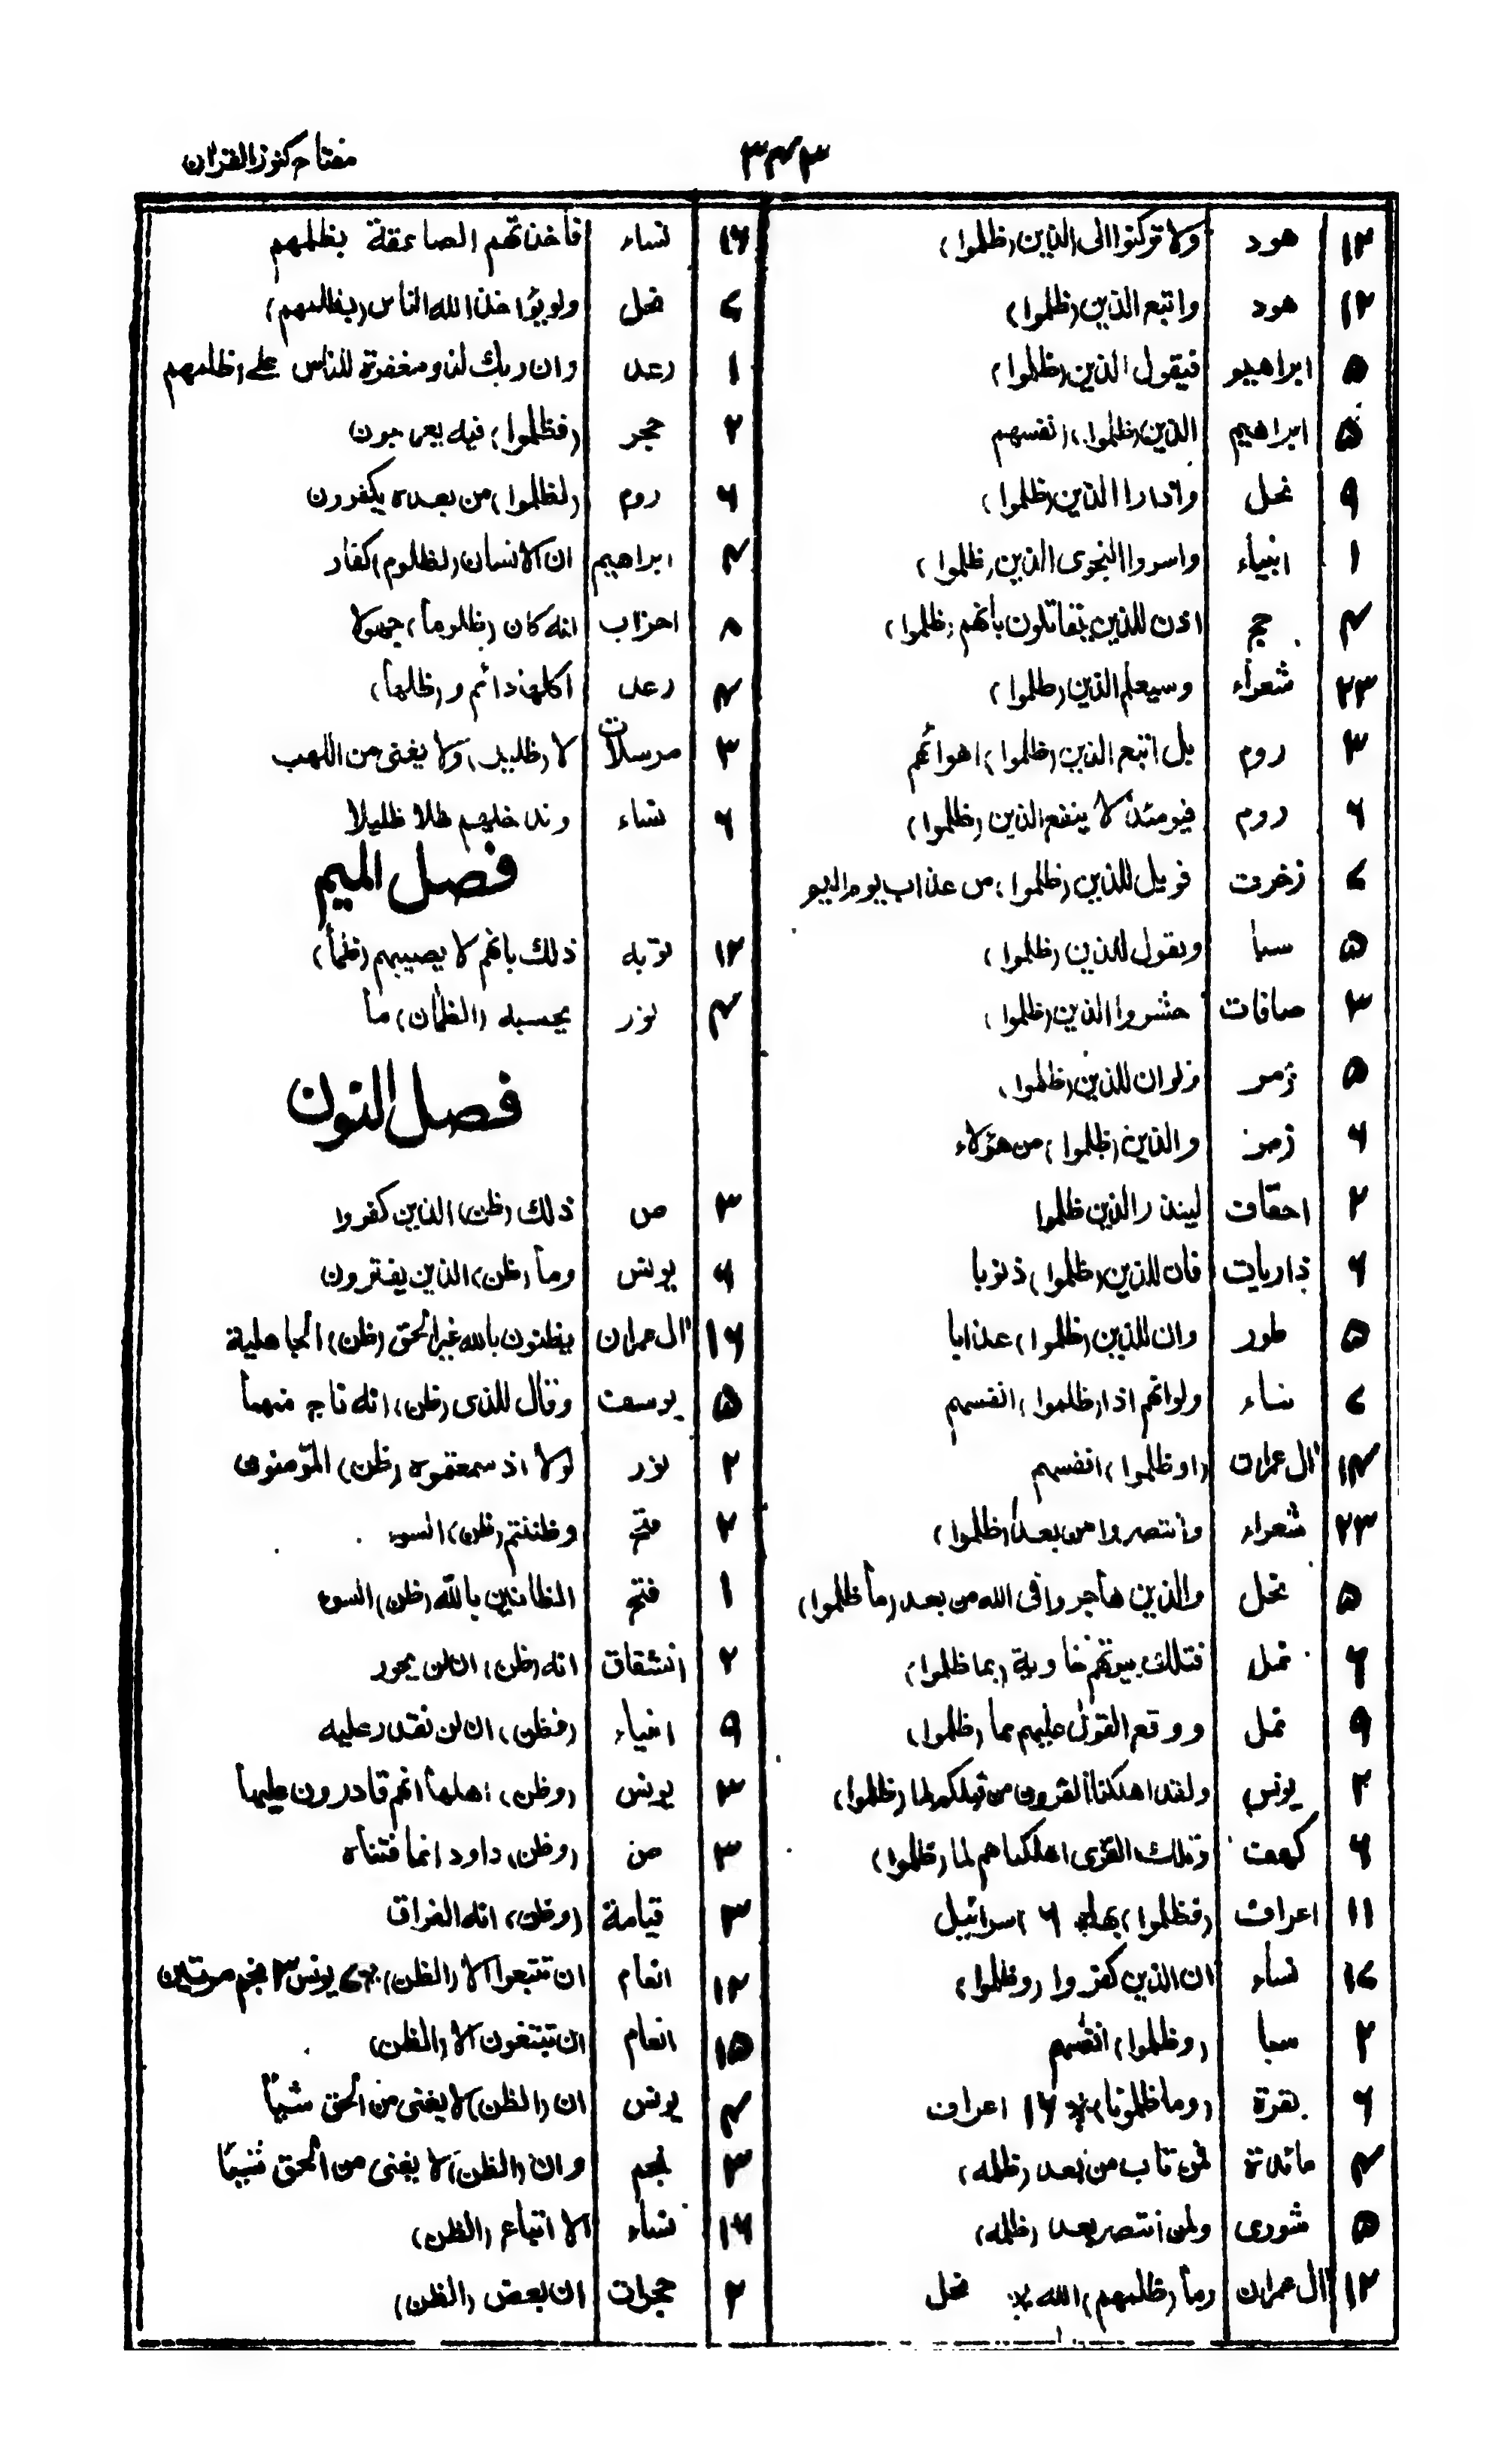 مفتاح کنوز القران
۳۴۳
۱۲ هود ولا تركنوا الى الذين (ظلموا)
۱۲ هود واتبع الذين (ظلموا)
۵ ابراهيم فيقول الذين (ظلموا)
۵ ابراهيم الذين (ظلموا) انفسهم
۹ نحل واذا را الذين (ظلموا)
۱ انبياء واسروا النجوى الذين (ظلموا)
۴ حج اذن للذين يقاتلون بأنهم (ظلموا)
۲۳ شعراء وسيعلم الذين (ظلموا)
۳ روم بل اتبع الذين (ظلموا) اهوائهم
۶ روم فيومئذ لا ينفع الذين (ظلموا)
۶ زخرف فويل للذين (ظلموا) من عذاب يوم اليم
۵ سبا ونقول للذين (ظلموا)
۳ صافات حشروا الذين (ظلموا)
۵ زمر ولو ان للذين (ظلموا)
۶ زمر والذين (ظلموا) من هؤلاء
۲ احقاف لينذر الذين ظلموا
۶ ذاريات فان للذين (ظلموا) ذنوبا
۵ طور وان للذين (ظلموا) عذابا
۶ نساء ولو انهم اذ (ظلموا) انفسهم
۱۴ ال عمران (او ظلموا) انفسهم
۲۳ شعراء وانتصروا من بعد (ظلموا)
۵ نحل والذين هاجروا فى الله من بعد (ما ظلموا)
۶ نمل فتلك بيوتهم خاوية (بما ظلموا)
۹ نمل ووقع القول عليهم بما (ظلموا)
۲ يونس ولقد اهلكنا القرون من قبلكم لما (ظلموا)
۶ كهف وتلك القرى اهلكناهم لما (ظلموا)
۱۱ اعراف (فظلموا) بها ۶ اسرائيل
۱۶ نساء ان الذين كفروا (وظلموا)
۲ سبا (وظلموا) انفسهم
۶ بقرة (وما ظلمونا) ۱۶ اعراف
۴ مائدة فمن تاب من بعد (ظلمه)
۵ شورى ولمن انتصر بعد (ظلمه)
۱۲ ال عمران وما (ظلمهم) الله نحل
۱۶ نساء فاخذتهم الصاعقة بظلمهم
۶ نحل ولو يؤاخذ الله الناس (بظلمهم)
۱ رعد وان ربك لذو مغفرة للناس على (ظلمهم
۲ حجر (فظلموا) فيه يعرجون
۶ روم (لظلموا) من بعده يكفرون
۴ ابراهيم ان الانسان (لظلوم) كفار
۸ احزاب انه كان (ظلوما) جهولا
۴ رعد اكلها دائم و (ظلها)
۳ مرسلات لا (ظليل) ولا يغنى من اللهب
۶ نساء وندخلهم ظلا ظليلا
فصل الميم
۱۲ توبه ذلك بانهم لا يصيبهم (ظمأ)
۴ نور يحسبه (الظمان) ما
فصل النون
۳ ص ذلك (ظن) الذين كفروا
۶ يونس وما (ظن) الذين يفترون
۱۶ ال عمران يظنون بالله غير الحق (ظن) الجاهلية
۵ يوسف وقال للذى (ظن) انه ناج منهما
۲ نور لولا اذ سمعتموه (ظن) المؤمنون
۲ فتح وظننتم (ظن) السوء
۱ فتح الظانين بالله (ظن) السوء
۲ انشقاق انه (ظن) ان لن يحور
۹ انبياء (فظن) ان لن نقدر عليه
۳ يونس (وظن) اهلها انهم قادرون عليها
۳ ص (وظن) داود انما فتناه
۳ قيامة (وظن) انه الفراق
۱۲ انعام ان تتبعوا الا (الظن) يونس ۳ نجم مرتين
۱۵ انعام ان تبتغون الا (الظن)
۴ يونس ان (الظن) لا يغنى من الحق شيأ
۳ نجم وان (الظن) لا يغنى من الحق شيئا
۱۶ نساء الا اتباع (الظن)
۲ حجرات ان بعض (الظن)